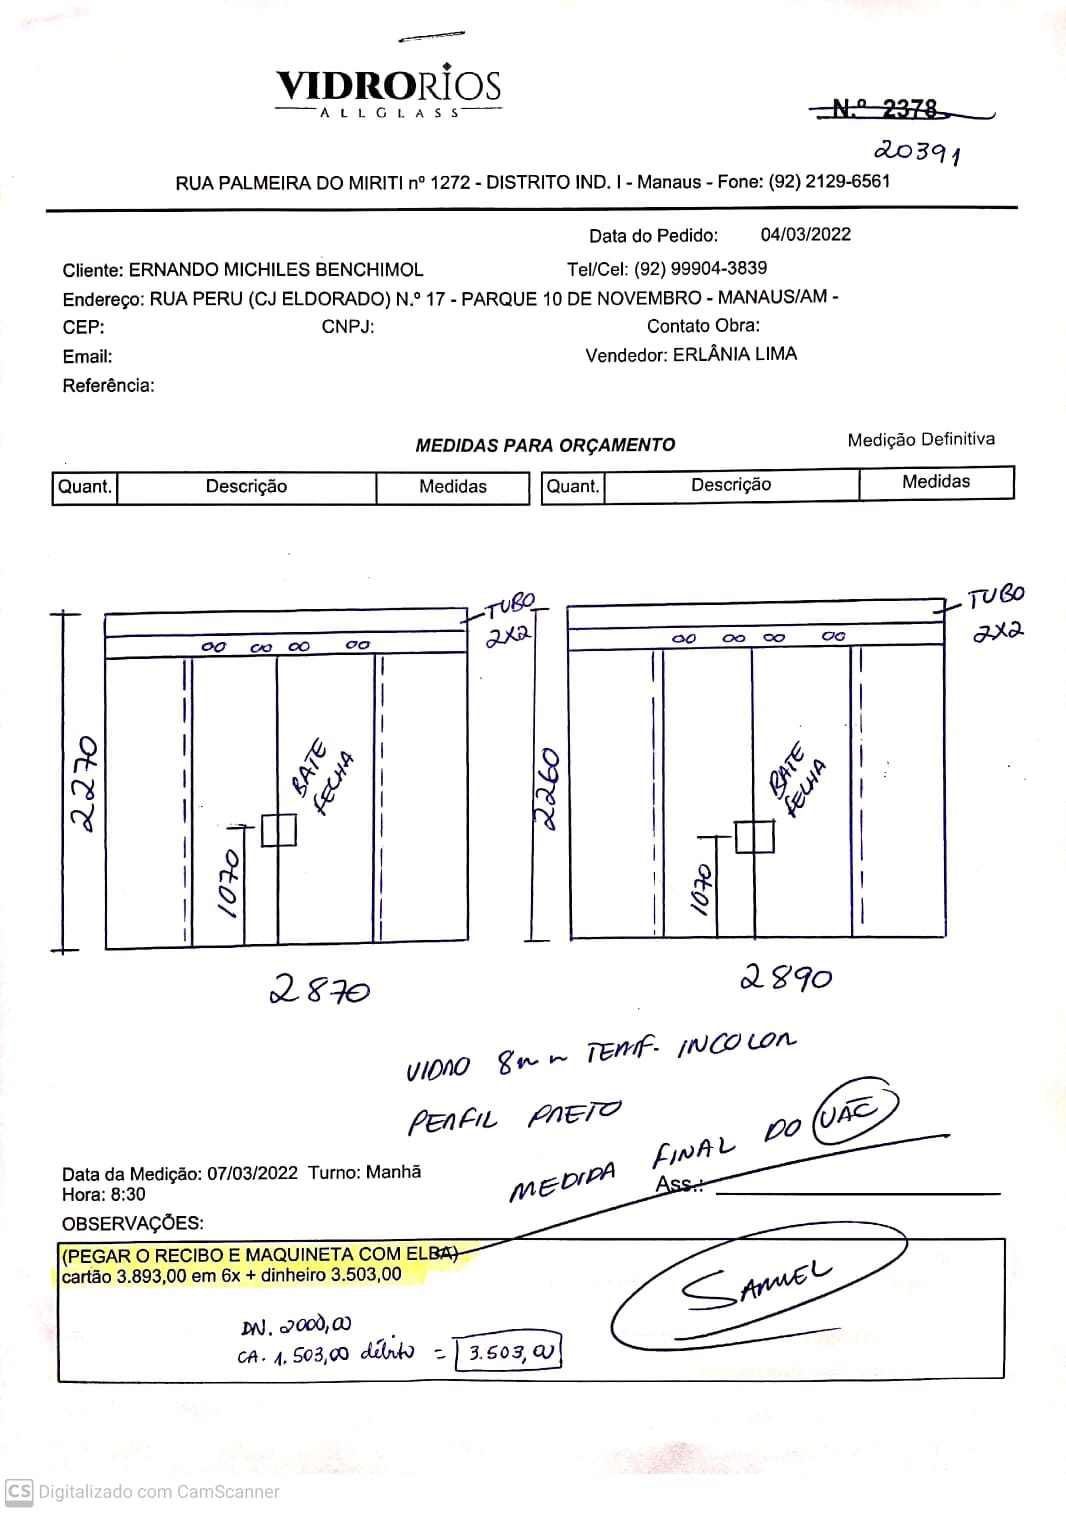 VIDRORÍOS
ALLGLASS
N.º 2378
20391
RUA PALMEIRA DO MIRITI nº 1272 - DISTRITO IND. I - Manaus - Fone: (92) 2129-6561
Data do Pedido: 04/03/2022
Cliente: ERNANDO MICHILES BENCHIMOL Tel/Cel: (92) 99904-3839
Endereço: RUA PERU (CJ ELDORADO) N.º 17 - PARQUE 10 DE NOVEMBRO - MANAUS/AM -
CEP: CNPJ: Contato Obra:
Email: Vendedor: ERLÂNIA LIMA
Referência:
MEDIDAS PARA ORÇAMENTO Medição Definitiva
Quant. Descrição Medidas Quant. Descrição Medidas
TUBO
2X2
2270
BATE
FECHA
1070
2870
TUBO
2X2
2260
BATE
FECHA
1070
2890
VIDRO 8mm TEMP. INCOLOR
PERFIL PRETO
MEDIDA FINAL DO VÃO
Data da Medição: 07/03/2022 Turno: Manhã
Hora: 8:30
Ass.:
OBSERVAÇÕES:
(PEGAR O RECIBO E MAQUINETA COM ELBA)
cartão 3.893,00 em 6x + dinheiro 3.503,00
SAMUEL
DN. 2000,00
CA. 1.503,00 débito = 3.503,00
CS Digitalizado com CamScanner